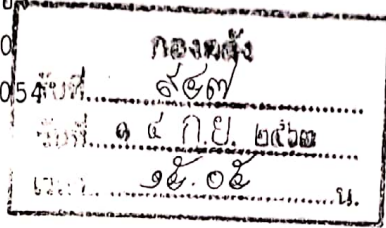 0
กองคลัง
054
รับที่ ๙๕๗
วันที่ ๑ ๔ ก.ย. ๒๕๖๓
เวลา ๑๕.๐๕ น.